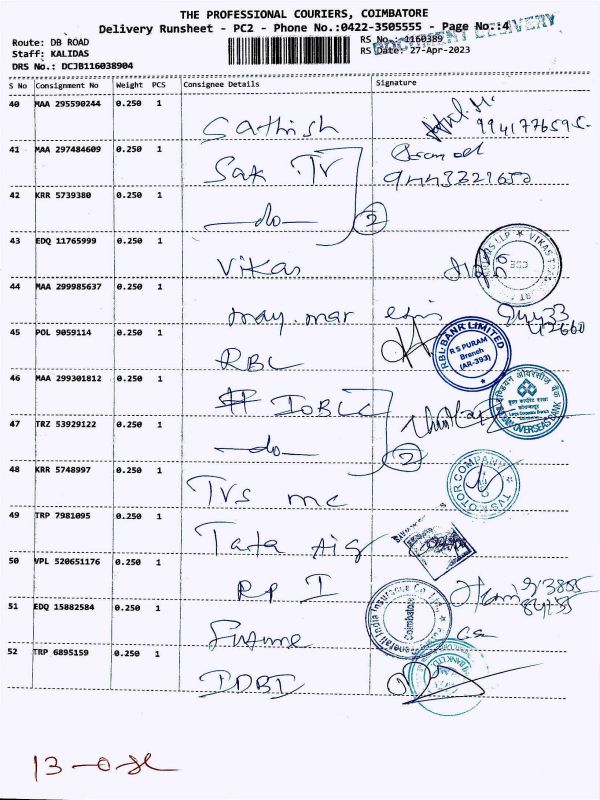 THE PROFESSIONAL COURIERS, COIMBATORE
Delivery Runsheet - PC2 - Phone No.:0422-3505555 - Page No.:4
DOCUMENT DELIVERY
Route: DB ROAD RS No.: 1160389
Staff: KALIDAS RS Date: 27-Apr-2023
DRS No.: DCJB116038904
S No Consignment No Weight PCS Consignee Details Signature
40 MAA 295590244 0.250 1
Sathish 9941776595
41 MAA 297484609 0.250 1
Sak TV 9443321650
42 KRR 5739380 0.250 1
do 2
43 EDQ 11765999 0.250 1
Vikas
44 MAA 299985637 0.250 1
may mar
45 POL 9059114 0.250 1
RBL
RBL BANK LIMITED
R S PURAM
Branch
(AR-393)
46 MAA 299301812 0.250 1
IOBLC
INDIAN OVERSEAS BANK
47 TRZ 53929122 0.250 1
do 2
48 KRR 5748997 0.250 1
TVS mc
TVS MOTOR COMPANY
49 TRP 7981095 0.250 1
Tata Aig
50 VPL 520651176 0.250 1
RP I
51 EDQ 15882584 0.250 1
Generali India Insurance Co.
Coimbatore
52 TRP 6895159 0.250 1
IDBI